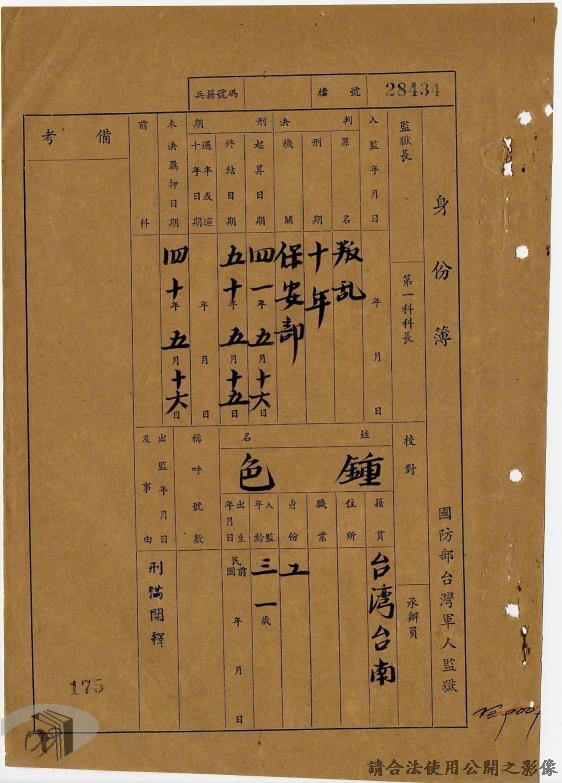 身份簿
國防部台灣軍人監獄
兵籍號碼
檔號 28434
監獄長
第一科科長
校對
承辦員
入監年月日 年 月 日
判決
罪名 叛乱
刑期 十年
機關 保安部
刑期
起算日期 四一年五月十六日
終結日期 五十年五月十五日
過半或逾十年日期 年 月 日
未決羈押日期 四十年五月十六日
前科
備考
姓名 鍾色
籍貫 台湾台南
住所
職業
身份 工
入監年齡 三一歲
出生年月日 民前國 年 月 日
稱呼號數
出監年月日及事由 刑滿開釋
175
請合法使用公開之影像